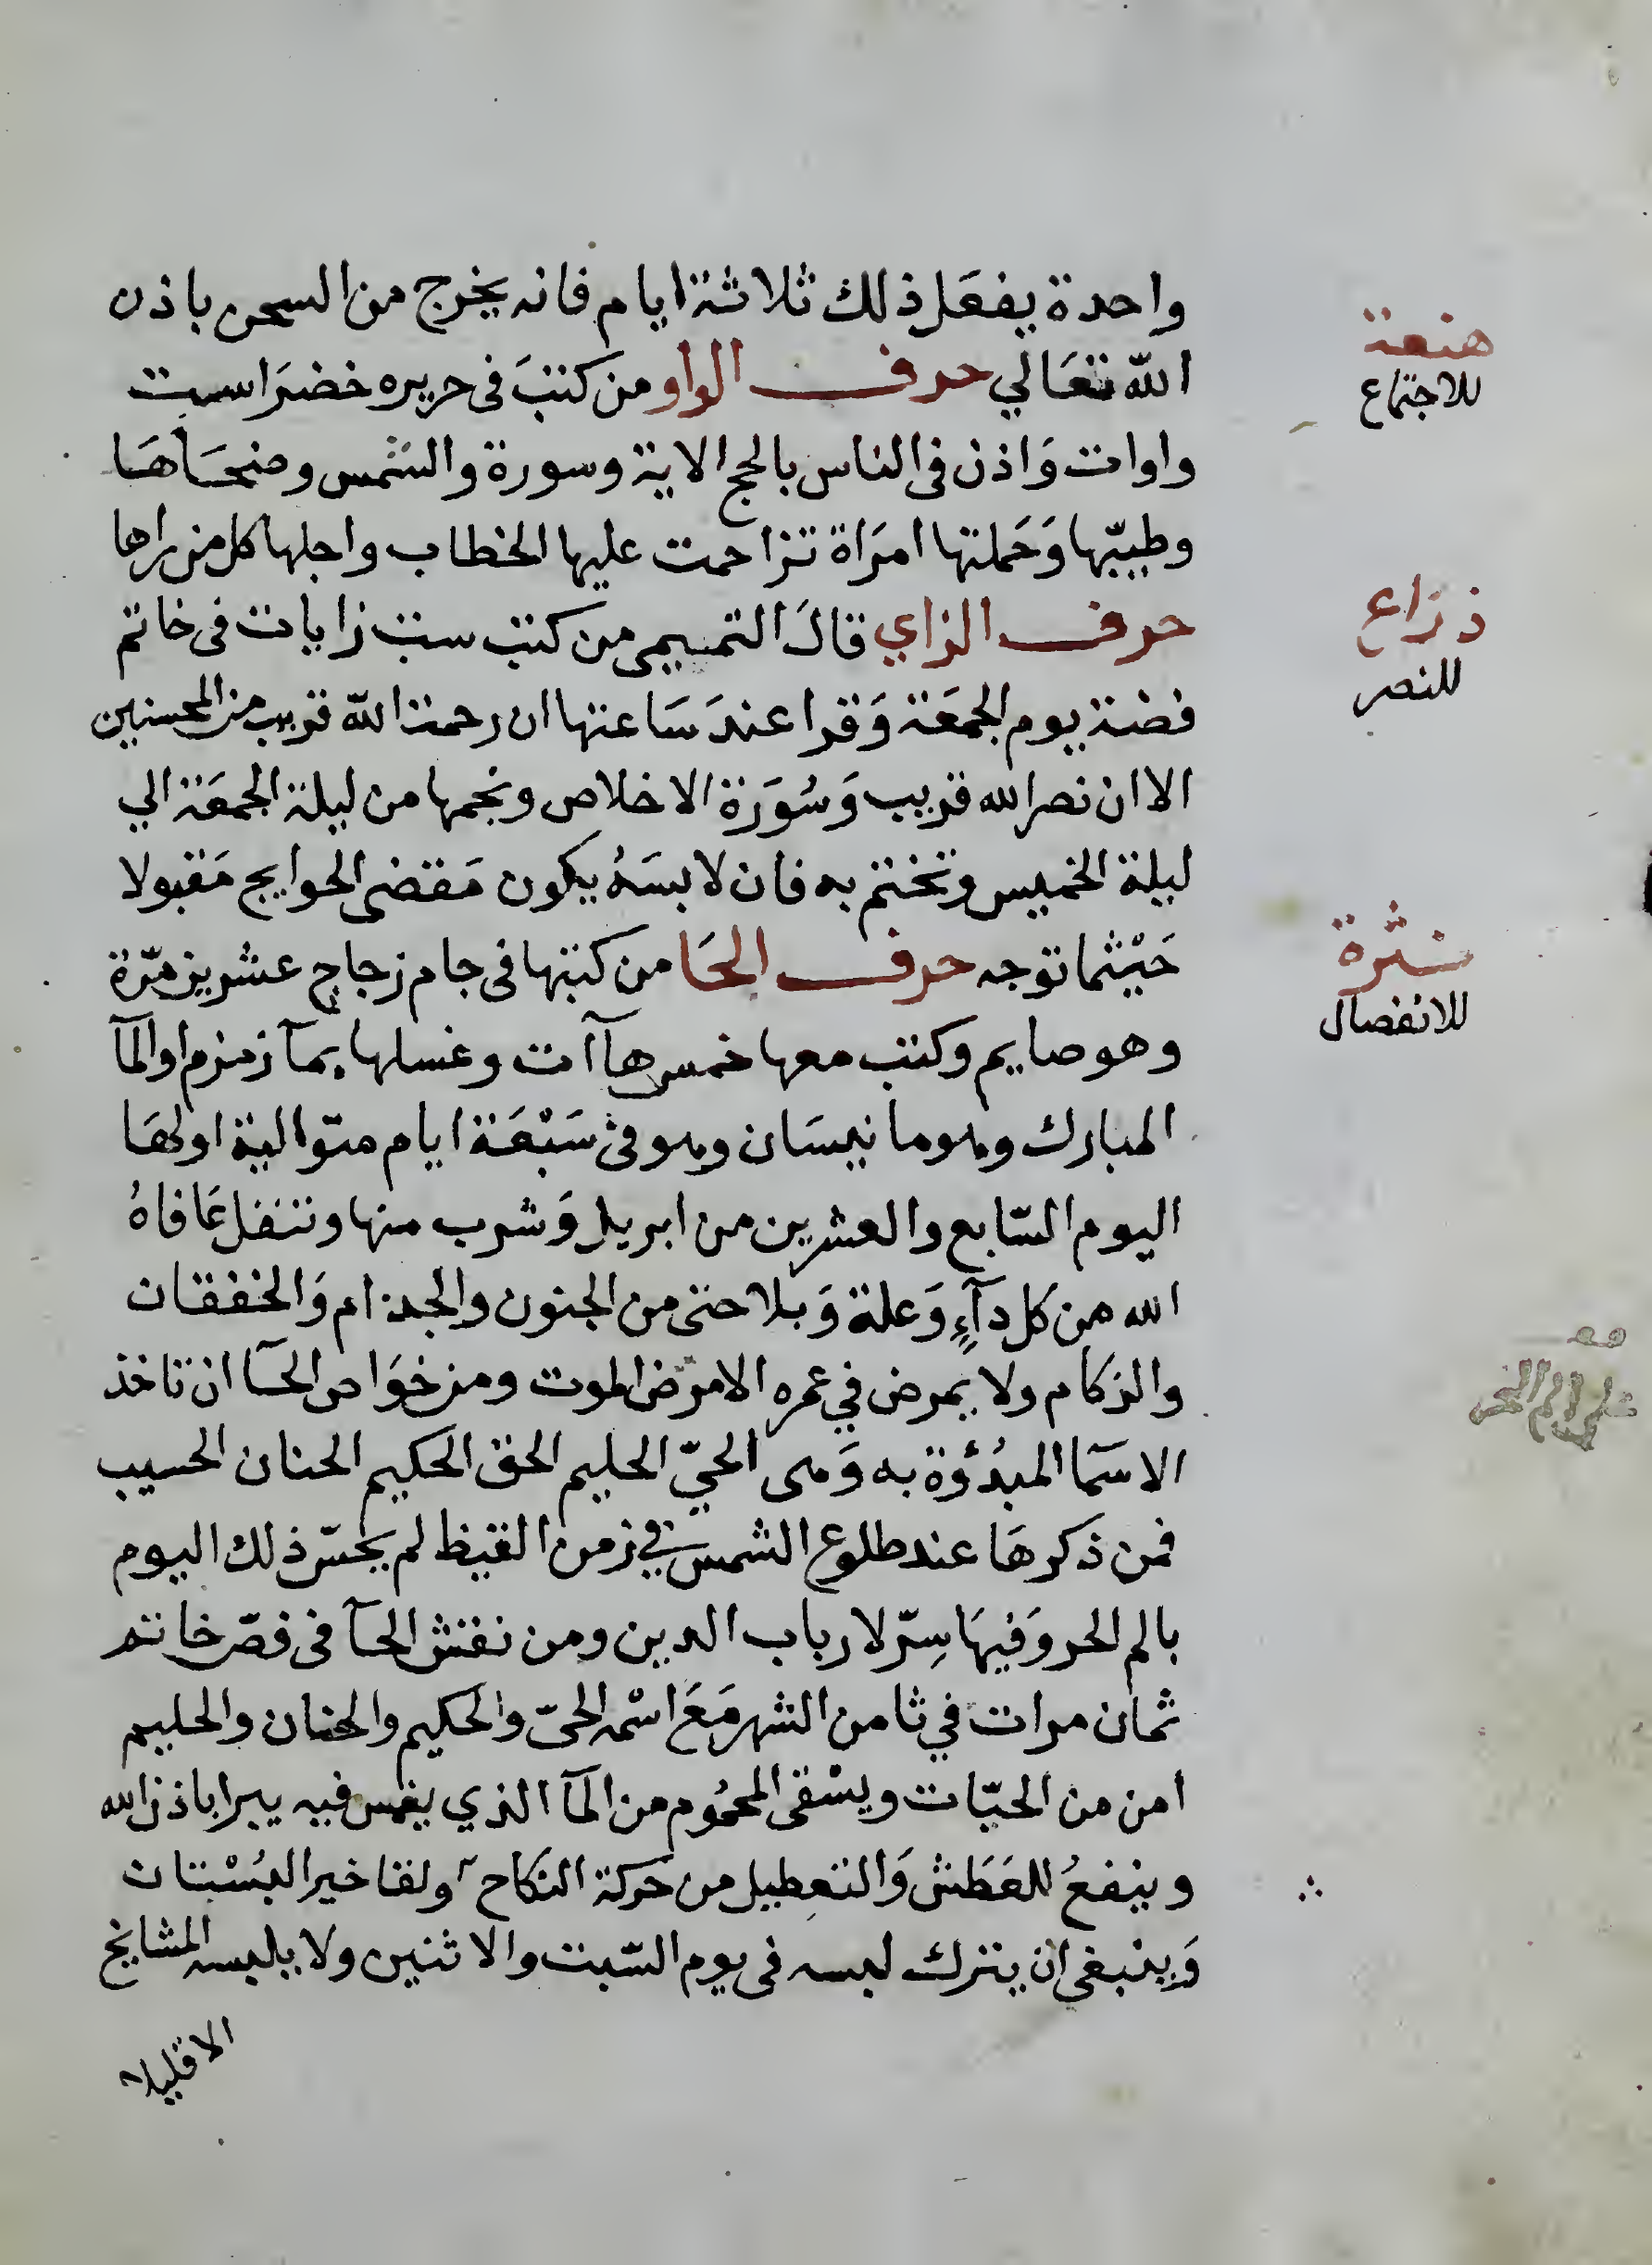 واحدة يفعَل ذلك ثلاثة ايام فانه يخرج من السجن باذن
الله تعَالي حرف الواو من كتبَ فى حريره خضرَا ست
واوات وَاذن فى الناس بالحج الاية وسورة والشمس وضحَاهَا
وطيّبها وَحَملتها امرَاة تزاحمت عليها الخطاب واجلها كل من راها
حرف الزاي قالَ التميمى من كتب ست زايات فى خاتم
فضة يوم الجمعَة وَقرا عندَ سَاعتها ان رحمت الله قريب من المحسنين
الا ان نصر الله قريب وَسُورَة الاخلاص ونجمها من ليلة الجمعَة الي
ليلة الخميس وتختم به فان لابسَهُ يكون مَقضى الحوايج مَقبولا
حَيْثما توجه حرف الحَا من كتبها فى جام زجاج عشرين مرّة
وهو صايم وكتب معها خمس هاآت وغسلها بمآ زمزم او المآ
المبارك وهو ما نيسَان وهو فى سَبْعَة ايام متوالية اولهَا
اليوم السّابع والعشرين من ابريل وَشرب منها وتنفل عَافاهُ
الله من كل دآءٍ وَعلة وَبلا حتى من الجنون والجذام وَالخفقان
والزكام ولا يمرض في عمره الا مرض الموت ومن خوَاص الحآ ان تاخذ
الاسمآ المبدُؤة به وَهى الحيّ الحليم الحق الحكيم الحنان الحسيب
فمن ذكرهَا عند طلوع الشمس في زمن القيظ لم يحسّ ذلك اليوم
بالم الحر وَفيهَا سِرّ لارباب الدين ومن نقش الحآ فى فصّ خاتم
ثمان مرات في ثامن الشهر مَعَ اسْمه الحىّ والحكيم والحنان والحليم
امن من الحيّات ويسْقى المحمُوم من المآ الذي يغمس فيه يبرا باذن الله
وينفعُ للعَطَش وَالتعطيل من حركة النكاح ولقا خير البُسْتان
وَينبغى ان يترك لبسه فى يوم السّبت والاثنين ولا يلبسه المشايخ
الا قليلا
هنعة
للاجتماع
ذرَاع
للنصر
نثرة
للانفصال